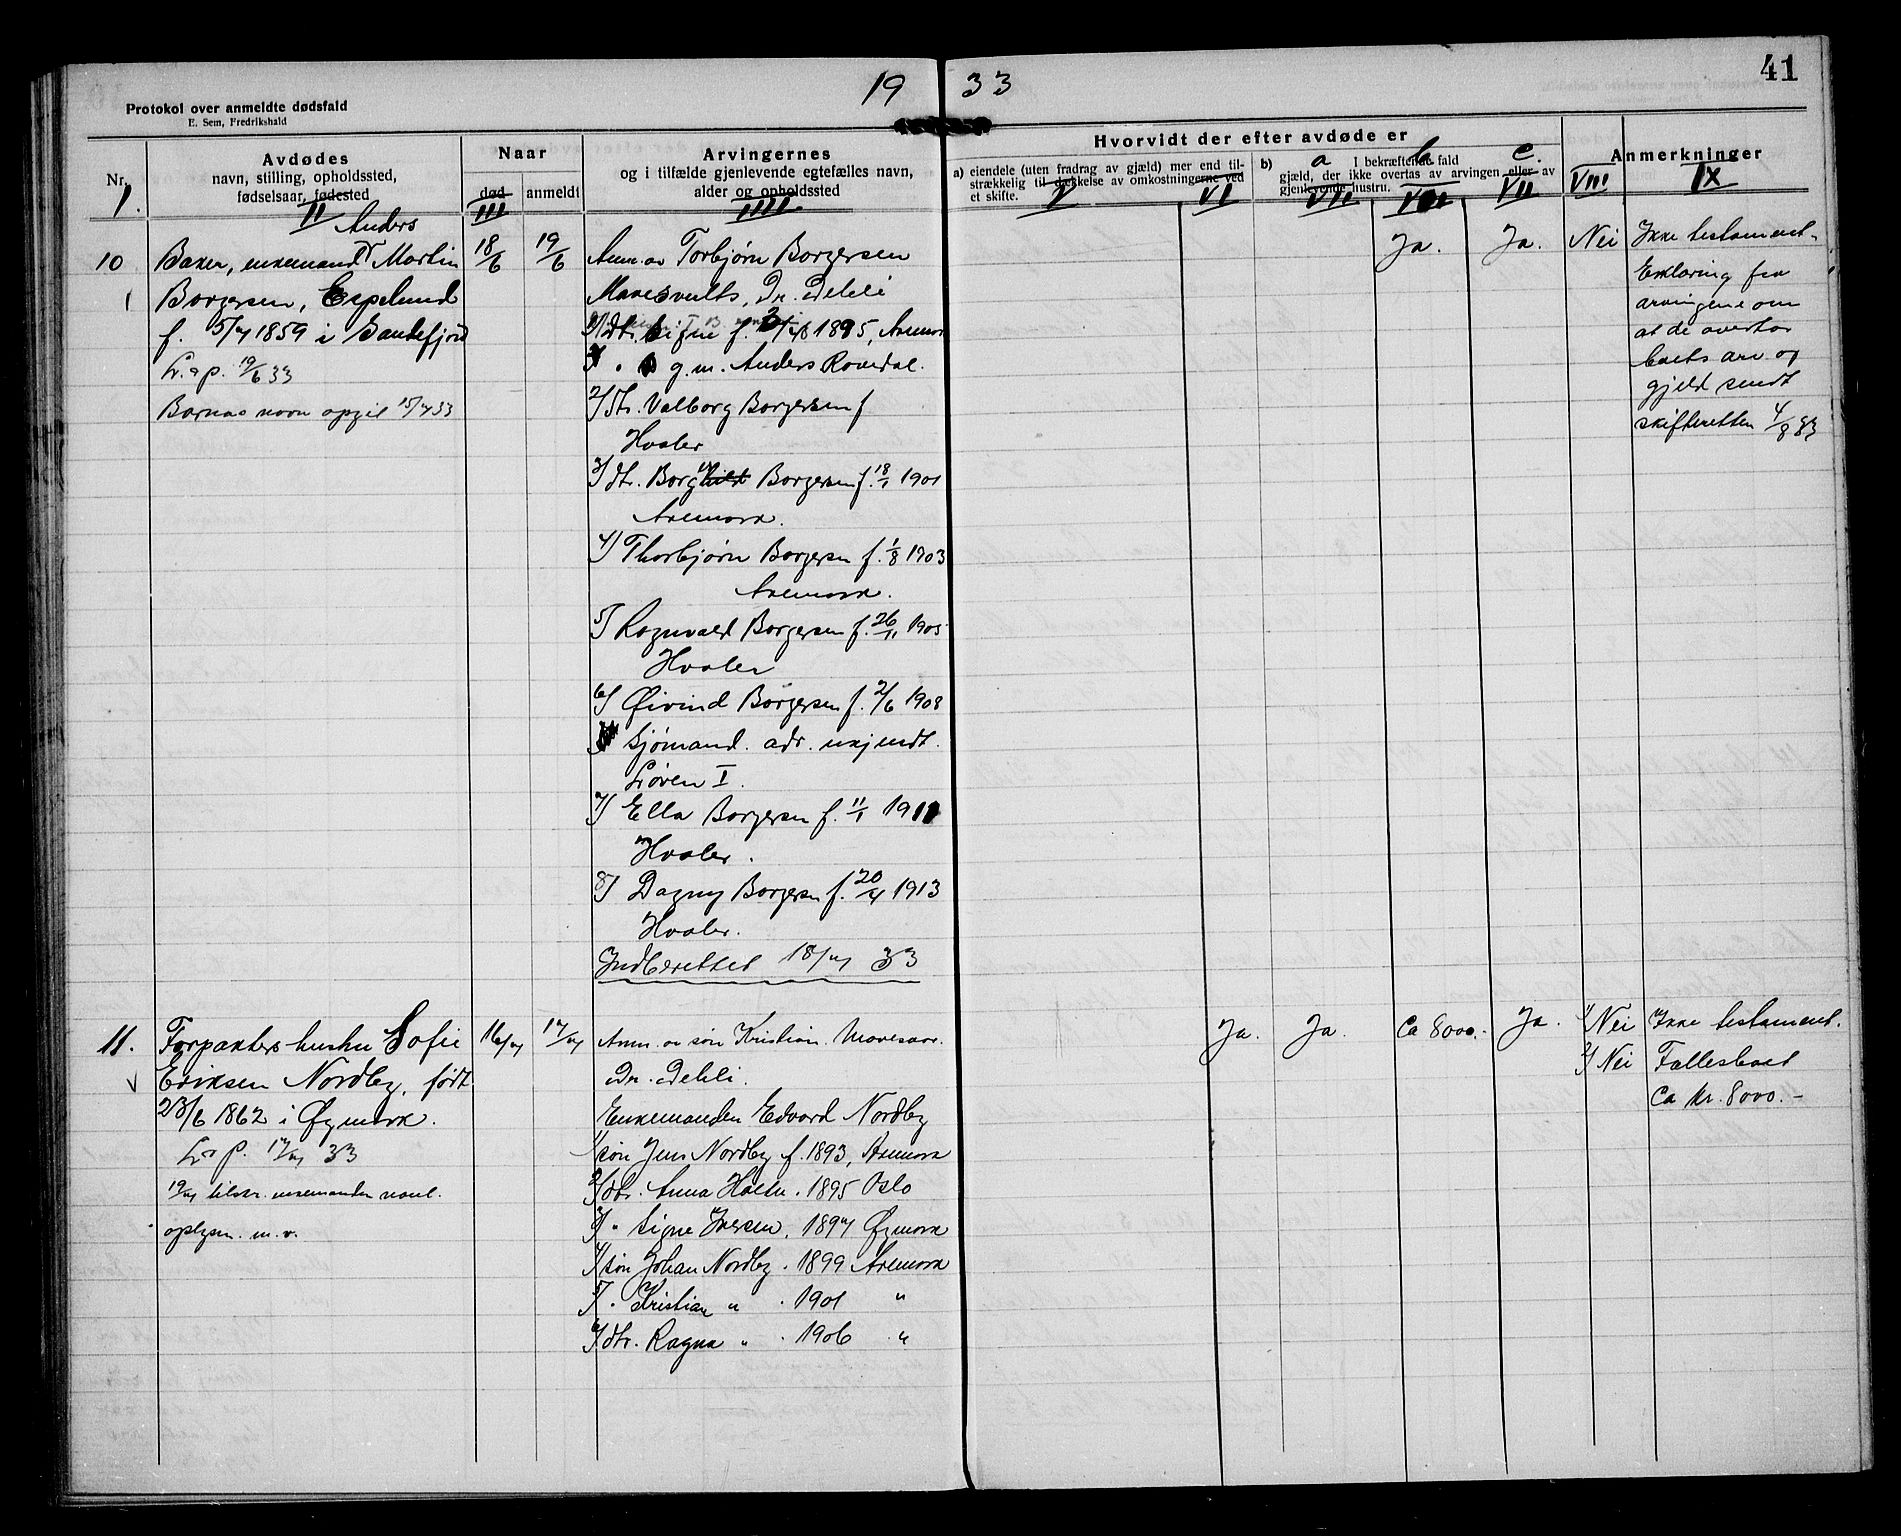 19 33
41
Protokol over anmeldte dødsfald
E. Sem, Fredrikshald
Nr.
1.
Avdødes
navn, stilling, opholdssted,
fødselsaar, fødested
II
Naar
død
III
anmeldt
Arvingernes
og i tilfælde gjenlevende egtefælles navn,
alder og opholdssted
IIII
Hvorvidt der efter avdøde er
a) eiendele (uten fradrag av gjæld) mer end til-
strækkelig til dækkelse av omkostningerne ved
et skifte.
V
VI
b) I bekræftende fald
gjæld, der ikke overtas av arvingen eller av
gjenlevende hustru.
a b c.
VII
VII
VIII
Anmerkninger
IX
10
Anders
Baker, enkemand Martin
Borgersen, Espelund
f. 5/7 1859 i Sandefjord
L. a p. 19/6 33
Barnas navn opgit 15/7 33
18/6
19/6
Anm. av Torbjørn Borgersen
1/ dtr. Signe f. 1895, Aremark
g.m. Anders Rovedal.
2/ dtr. Valborg Borgersen f
Hvaler
3/ dtr. Borghild Borgersen f. 18/1 1901
Aremark.
4/ Thorbjørn Borgersen f. 1/8 1903
Aremark.
5/ Ragnvald Borgersen f. 26/11 1905
Hvaler
6/ Øivind Borgersen f. 2/6 1908
Sjømand. adr. ukjendt.
Løven I.
7/ Ella Borgersen f. 11/1 1911
Hvaler.
8/ Dagny Borgersen f. 20/4 1913
Hvaler.
Indberettet 18/7 33
Ja.
Ja.
Nei
Ikke testament.
Erklæring fra
arvingene om
at de overtar
boets arv og
gjeld sendt
skifteretten 4/8 33
11.
Forpakters hustru Sofie
Eriksen Nordby, født
23/6 1862 i Øymark.
L. a p. 17/7 33
19/7 tilskr. enkemanden navl.
oplysn. m. v.
16/7
17/7
Anm. av søn Kristian.
Enkemanden Edvard Nordby
1/ søn Jens Nordby f. 1893, Aremark
2/ dtr. Anna Holm . 1895 Oslo
3/ " Signe Iversen . 1897 Øymark
4/ søn Johan Nordby . 1899 Aremark
5/ " Kristian " . 1901 "
6/ dtr. Ragna " . 1906 "
Ja.
Ja.
Ca 8000.-
Ja.
1/ Nei
2/ Nei
Ikke testament.
Fællesboet
Ca kr. 8000.-